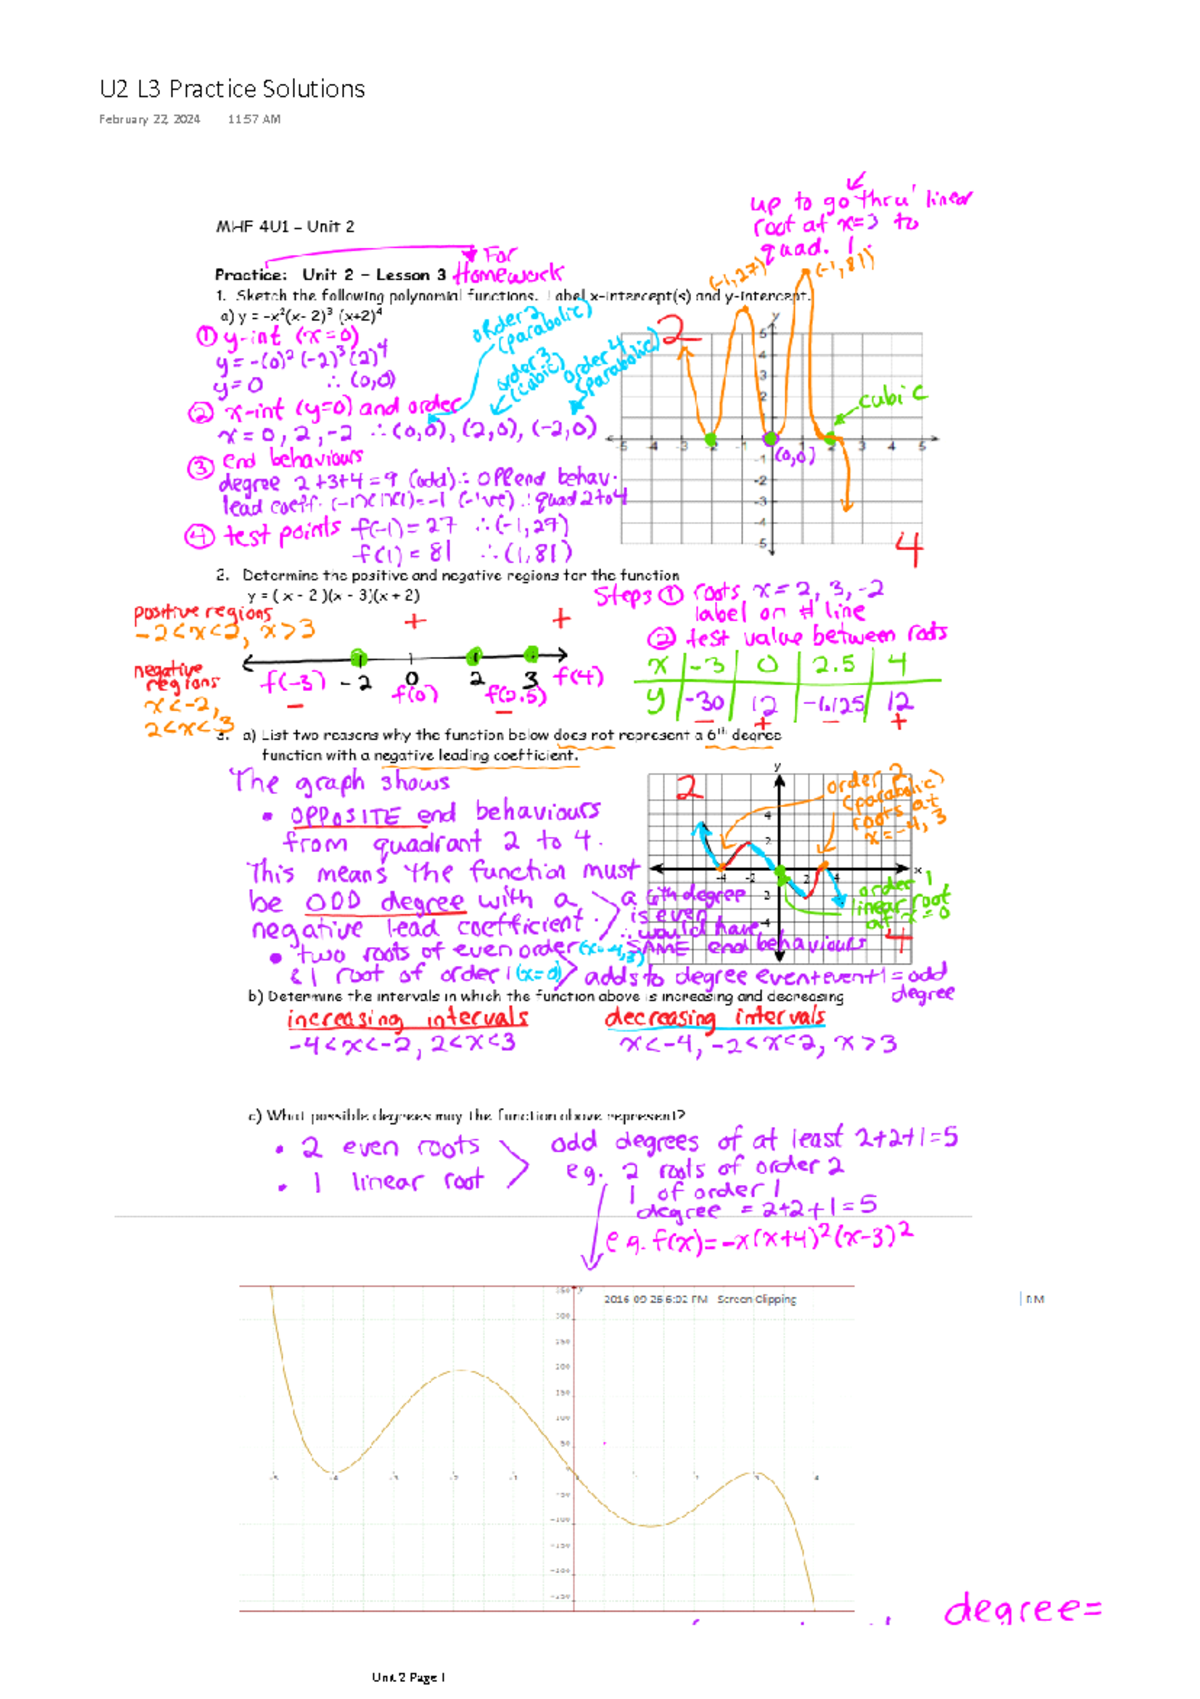 U2 L3 Practice Solutions
February 22, 2024 11:57 AM
up to go thru' linear
root at x=3 to
quad. 1.
MHF 4U1 – Unit 2
For
Practice: Unit 2 – Lesson 3 Homework
(-1,27) (-1,81)
1. Sketch the following polynomial functions. Label x-intercept(s) and y-intercept.
a) y = -x²(x- 2)³ (x+2)⁴
① y-int (x=0)
y=-(0)²(-2)³(2)⁴
y=0 ∴ (0,0)
order 2 (parabolic)
order 3 (cubic)
order 4 (parabolic)
② x-int (y=0) and order
x=0, 2, -2 ∴(0,0), (2,0), (-2,0)
③ end behaviours
degree 2+3+4=9 (odd)∴ opp end behav.
lead coeff. (-1)(1)(1)=-1 (-'ve) ∴ quad 2 to 4
④ test points f(-1)=27 ∴(-1,27)
f(1)=81 ∴(1,81)
2
y
5
4
3
2
cubic
-5 -4 -3 -1 2 3 4 5
-1 (0,0)
-2
-3
-4
-5
4
2. Determine the positive and negative regions for the function
y = ( x - 2 )(x - 3)(x + 2)
Steps ① roots x=2, 3, -2
label on # line
② test value between roots
positive regions
-2<x<2, x>3
+ +
negative regions
x<-2,
2<x<3
-2 0 2 3
f(-3) f(0) f(2.5) f(4)
− −
x | -3 | 0 | 2.5 | 4
y | -30 | 12 | -1.125 | 12
− + − +
3. a) List two reasons why the function below does not represent a 6th degree
function with a negative leading coefficient.
The graph shows
• OPPOSITE end behaviours
from quadrant 2 to 4.
This means the function must
be ODD degree with a
negative lead coefficient.
a 6th degree
is even
∴ would have
SAME end behaviours
• two roots of even order (x=-4,3)
& 1 root of order 1 (x=0) adds to degree even+even+1 = odd
degree
2
y
order 2
(parabolic)
roots at
x=-4, 3
4
2
-4 -2 2 4 x
2
-4
order 1
linear root
at x=0
4
b) Determine the intervals in which the function above is increasing and decreasing
increasing intervals decreasing intervals
-4<x<-2, 2<x<3 x<-4, -2<x<2, x>3
c) What possible degrees may the function above represent?
• 2 even roots
• 1 linear root
odd degrees of at least 2+2+1=5
eg. 2 roots of order 2
1 of order 1
degree = 2+2+1=5
eg. f(x)=-x(x+4)²(x-3)²
2016-09-26 6:02 PM - Screen Clipping
y
350
300
250
200
150
100
50
-5 -4 -3 -2 -1 0 1 2 3 4
-50
-100
-150
-200
-250
degree=
Unit 2 Page 1